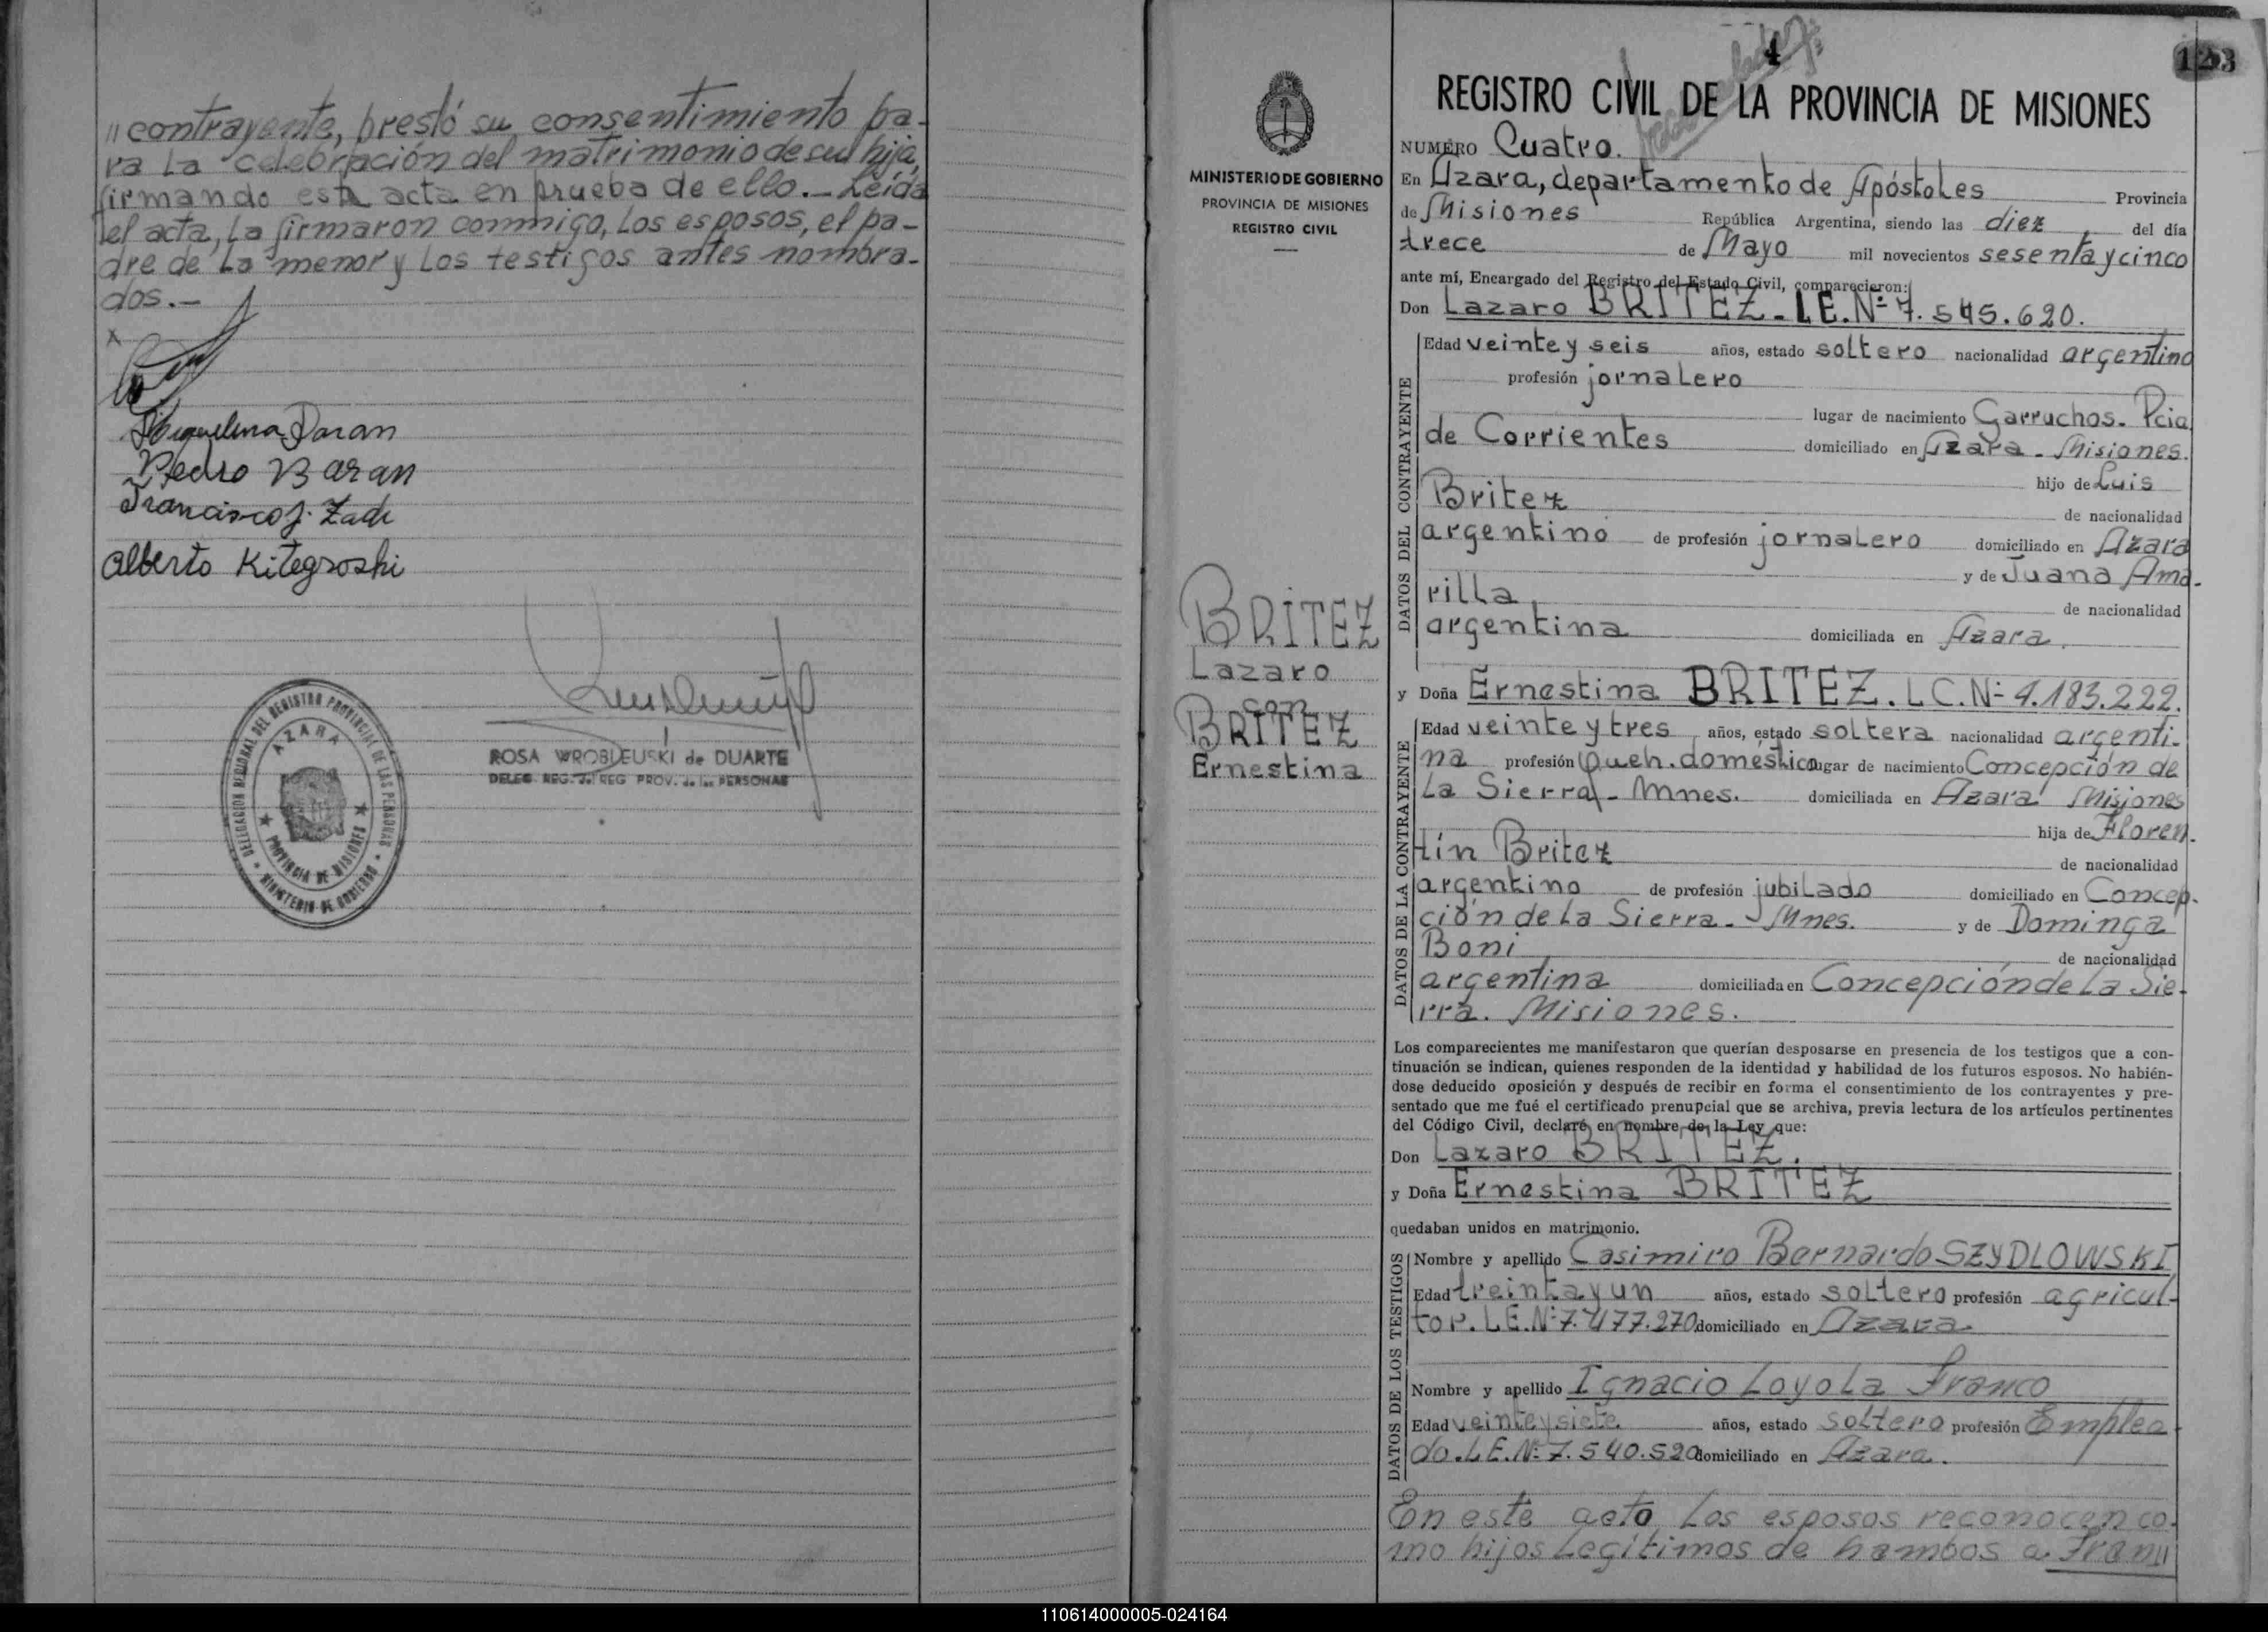 // contrayente, prestó su consentimiento pa-
ra la celebración del matrimonio de su hija,
firmando esta acta en prueba de ello.- Leída
el acta, la firmaron conmigo, los esposos, el pa-
dre de la menor y los testigos antes nombra-
dos.-
x
Miguelina Baran
Pedro Baran
Francisco J. Zadi
Alberto Kitegroski
DELEGACION REGIONAL DEL REGISTRO PROVINCIAL DE LAS PERSONAS
AZARA
PROVINCIA DE MISIONES
MINISTERIO DE GOBIERNO
ROSA WROBLEUSKI de DUARTE
DELEG. REG. del REG PROV. de las PERSONAS
MINISTERIO DE GOBIERNO
PROVINCIA DE MISIONES
REGISTRO CIVIL
BRITEZ
Lazaro
con
BRITEZ
Ernestina
4
123
REGISTRO CIVIL DE LA PROVINCIA DE MISIONES
NUMERO Cuatro.
En Azara, departamento de Apóstoles Provincia
de Misiones República Argentina, siendo las diez del día
trece de Mayo mil novecientos sesenta y cinco
ante mí, Encargado del Registro del Estado Civil, comparecieron:
Don Lazaro BRITEZ. L.E. Nº 7.545.620.
DATOS DEL CONTRAYENTE
Edad veinte y seis años, estado soltero nacionalidad argentino
profesión jornalero
lugar de nacimiento Garruchos. Pcia
de Corrientes domiciliado en Azara. Misiones.
hijo de Luis
Britez de nacionalidad
argentino de profesión jornalero domiciliado en Azara
y de Juana Ama-
rilla de nacionalidad
argentina domiciliada en Azara.
y Doña Ernestina BRITEZ. L.C. Nº 4.183.222.
DATOS DE LA CONTRAYENTE
Edad veinte y tres años, estado soltera nacionalidad argenti-
na profesión Queh. doméstico lugar de nacimiento Concepción de
la Sierra - Mnes. domiciliada en Azara Misiones
hija de Floren-
tín Britez de nacionalidad
argentino de profesión jubilado domiciliado en Concep-
ción de la Sierra - Mnes. y de Dominga
Boni de nacionalidad
argentina domiciliada en Concepción de la Sie-
rra. Misiones.
Los comparecientes me manifestaron que querían desposarse en presencia de los testigos que a con-
tinuación se indican, quienes responden de la identidad y habilidad de los futuros esposos. No habién-
dose deducido oposición y después de recibir en forma el consentimiento de los contrayentes y pre-
sentado que me fué el certificado prenupcial que se archiva, previa lectura de los artículos pertinentes
del Código Civil, declaré en nombre de la Ley que:
Don Lazaro BRITEZ.
y Doña Ernestina BRITEZ
quedaban unidos en matrimonio.
DATOS DE LOS TESTIGOS
Nombre y apellido Casimiro Bernardo SZYDLOWSKI
Edad treinta y un años, estado soltero profesión agricul-
tor. L.E. Nº 7.477.270 domiciliado en Azara.
Nombre y apellido Ignacio Loyola Franco
Edad veinte y siete años, estado soltero profesión Emplea-
do. L.E. Nº 7.540.520 domiciliado en Azara.
En este acto los esposos reconocen co-
mo hijos legítimos de hambos a Fran//
110614000005-024164